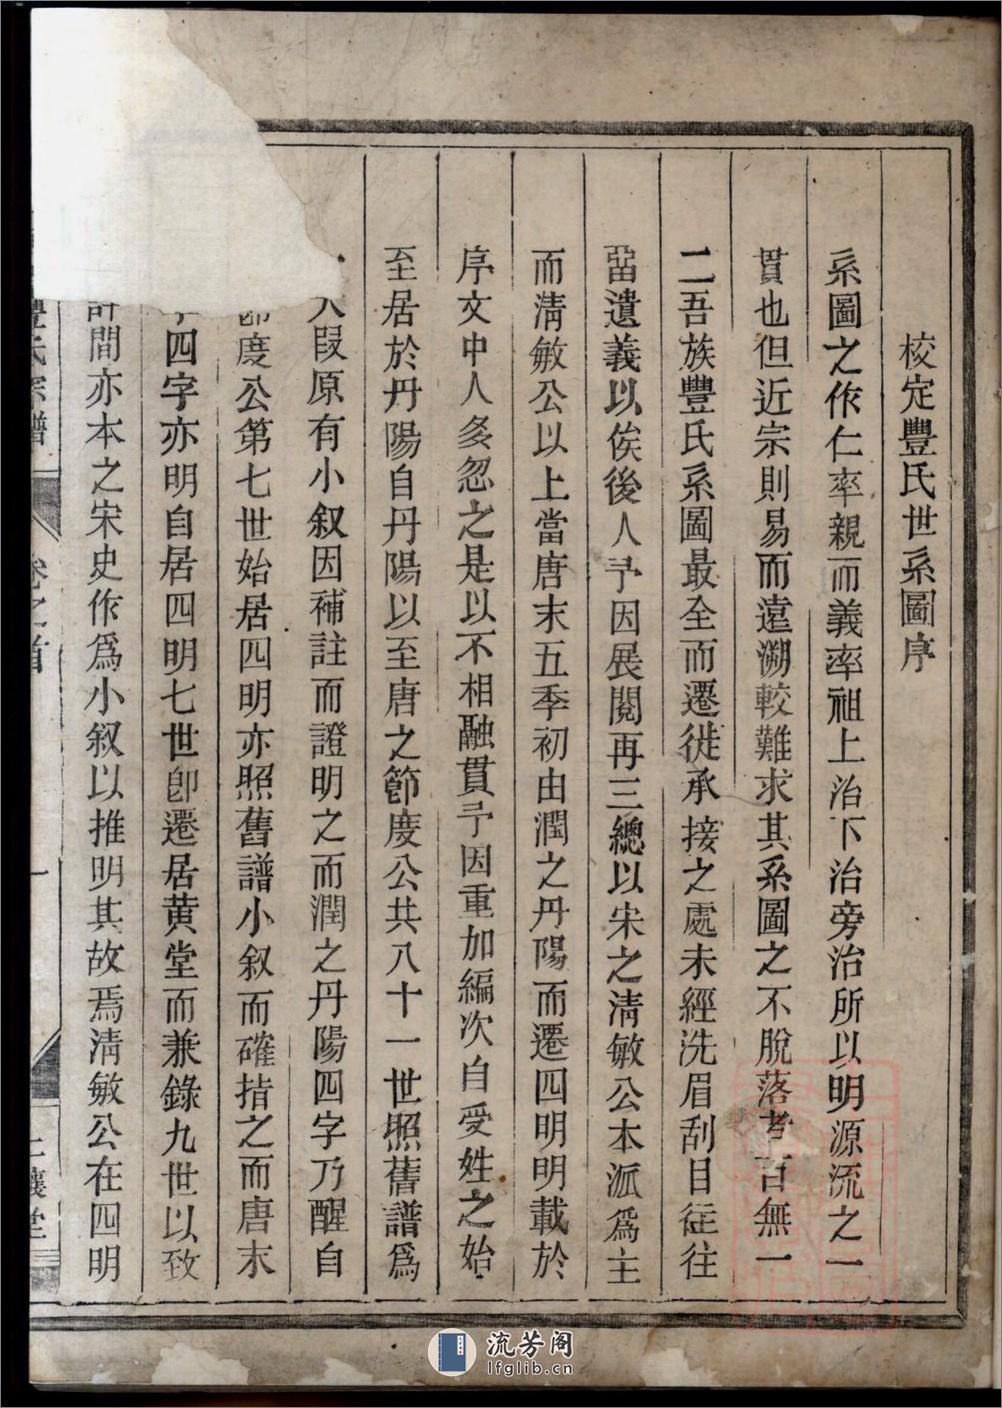 校定豐氏世系圖序
系圖之作仁率親而義率祖上治下治旁治所以明源流之一
貫也但近宗則易而遠溯較難求其系圖之不脫落者百無一
二吾族豐氏系圖最全而遷徙承接之處未經洗眉刮目往往
留遺義以俟後人予因展閱再三總以宋之淸敏公本派爲主
而淸敏公以上當唐末五季初由潤之丹陽而遷四明明載於
序文中人多忽之是以不相融貫予因重加編次自受姓之始
至居於丹陽自丹陽以至唐之節度公共八十一世照舊譜爲
大段原有小叙因補註而證明之而潤之丹陽四字乃醒自
節度公第七世始居四明亦照舊譜小叙而確指之而唐末
四字亦明自居四明七世卽遷居黃堂而兼錄九世以致
許間亦本之宋史作爲小叙以推明其故焉淸敏公在四明
豐氏宗譜
卷之首
一
讓堂
流芳阁
lfglib.cn